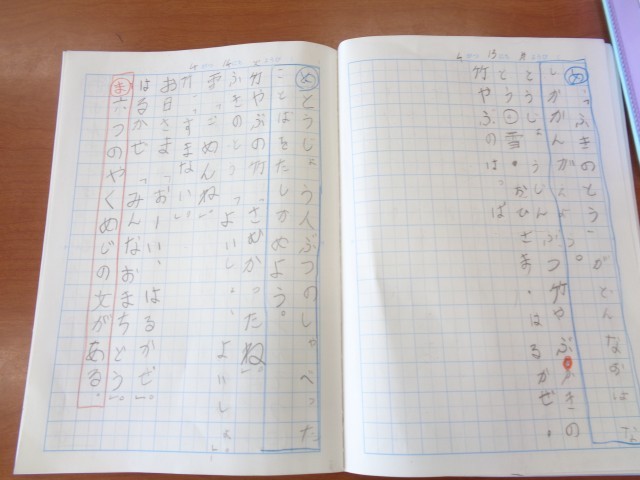 め 「ふきのとう」がどんなおはな
しかかんがえよう。
とうじょうじんぶつ 竹やぶ ふきの
とう・雪・おひさま・はるかぜ・
竹やぶのはっぱ
め とうじょう人ぶつのしゃべった
ことばをたしかめよう。
竹やぶの竹「さむかったね。」
ふきのとう「よいしょ、よいしょ。」
雪「ごめんね。」
すまない」
お日さま「おーい、はるかぜ。」
はるかぜ「みんなおまちどう。」
ま 六つのやくめじの文がある。